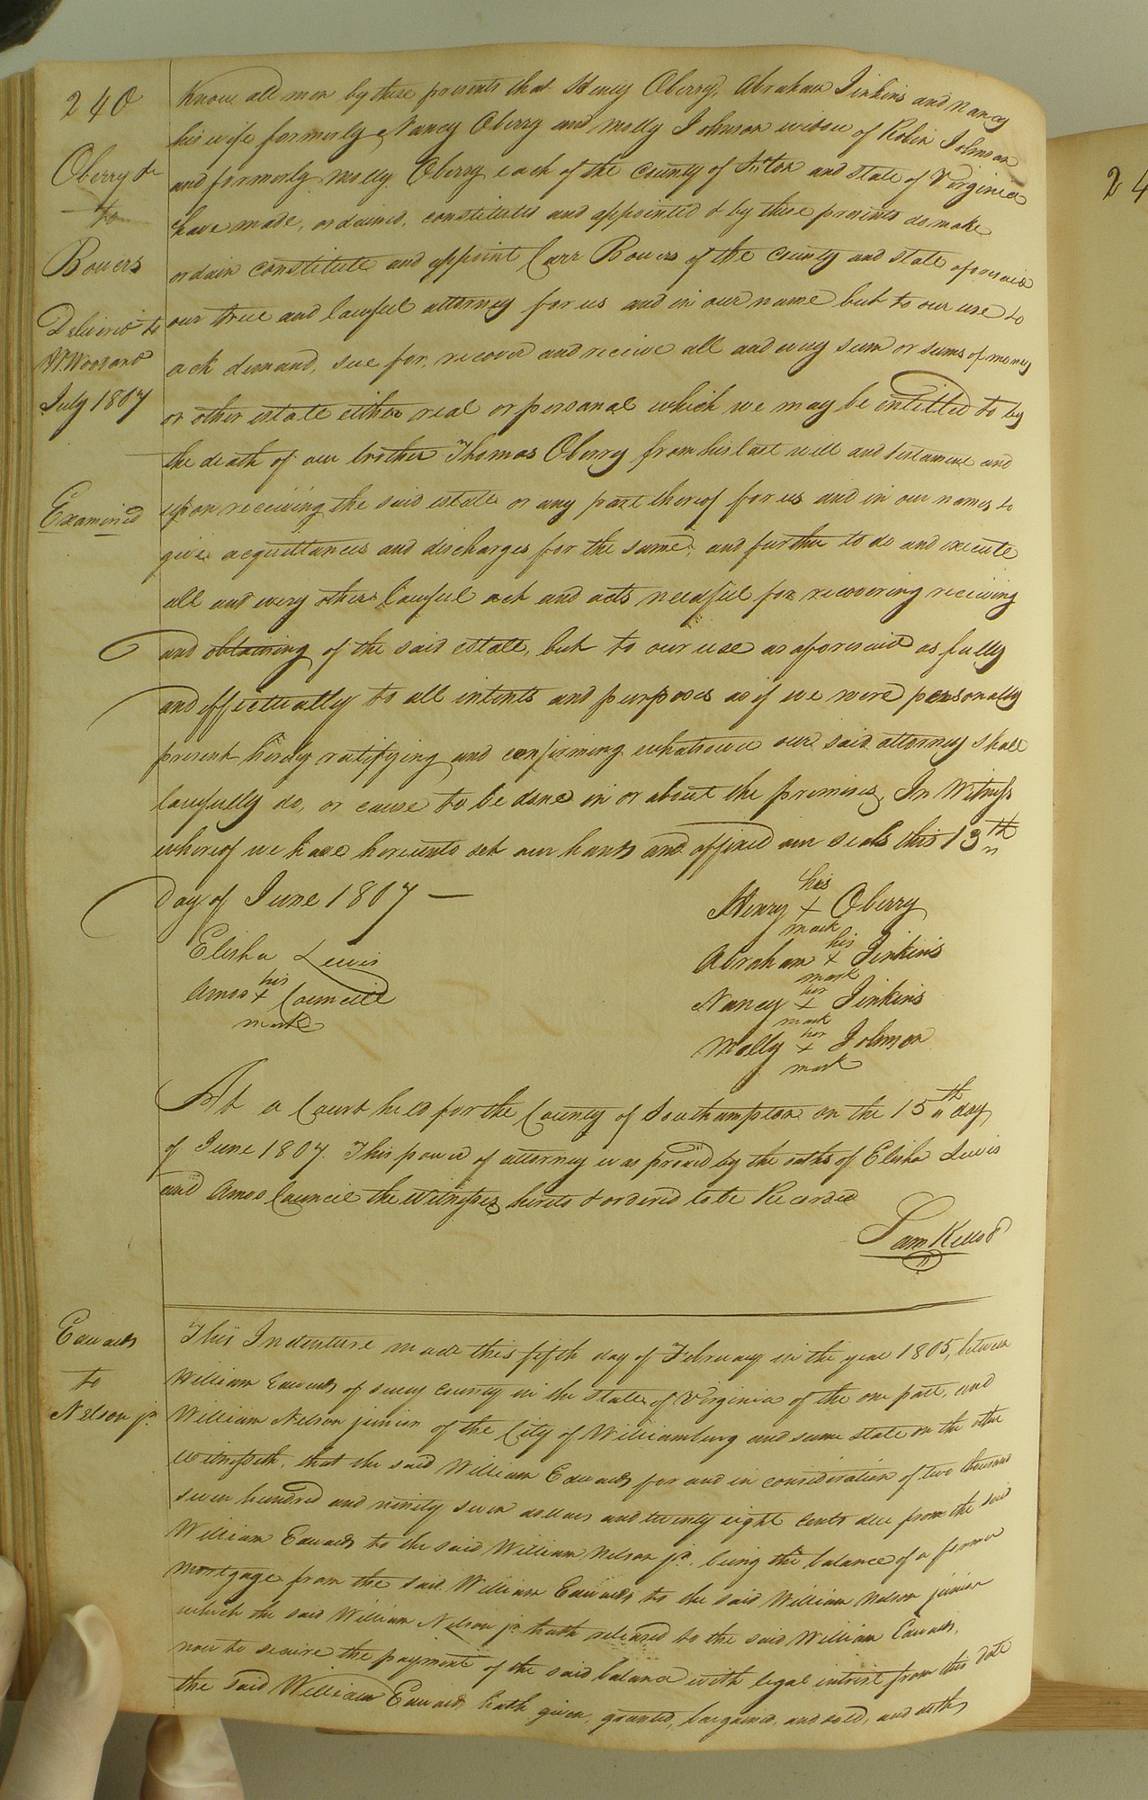 240
Oberry &c
to
Bowers
Deliver'd to
W. Woodard
July 1807
Examined
Know all men by these presents that Henry Oberry, Abraham Jinkins and Nancy
his wife formerly Nancy Oberry and Molly Johnson widow of Robin Johnson
and formerly Molly Oberry each of the County of and state of Virginia
have made, ordained, constituted and appointed & by these presents do make
ordain constitute and appoint Carr Bowers of the County and state aforesaid
our true and lawful attorney for us and in our name but to our use to
ask demand, sue for, recover and receive all and every sum or sums of money
or other estate either real or personal which we may be intitled to by
the death of our brother Thomas Oberry from his last will and testament and
upon receiving the said estate or any part thereof for us and in our names to
give acquittances and discharges for the same; and further to do and execute
all and every other lawful act and acts needful for recovering receiving
and obtaining of the said estate, but to our use as aforesaid as fully
and effectually to all intents and purposes as if we were personally
present hereby ratifying and confirming whatsoever our said attorney shall
lawfully do, or cause to be done in or about the premises, In Witness
whereof we have hereunto set our hands and affixed our seals this 13th
day of June 1807 —
Elisha Lewis
his
Amos + Council
mark
his
Henry + Oberry
mark
his
Abraham + Jinkins
mark
her
Nancy + Jinkins
mark
her
Molly + Johnson
mark
At a Court held for the County of Southampton on the 15th day
of June 1807. This power of attorney was proved by the oaths of Elisha Lewis
and Amos Council the Witnesses hereto & ordered to be Recorded
Sam Kello
Edwards
to
Nelson jr.
This Indenture made this fifth day of February in the year 1805, between
William Edwards of Surry county in the state of Virginia of the one part, and
William Nelson junior of the City of Williamsburg and same state on the other
witnesseth, that the said William Edwards for and in consideration of two thousand
seven hundred and ninety seven dollars and twenty eight cents due from the said
William Edwards to the said William Nelson jr. being the balance of a former
mortgage from the said William Edwards to the said William Nelson junior
which the said William Nelson jr. hath released to the said William Edwards,
now to secure the payment of the said balance with legal interest from this date
the said William Edwards hath given, granted, bargained, and sold, and doth
24